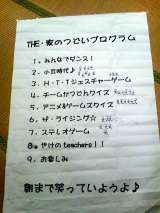 THE・夜のつどいプログラム
1. みんなでダンス!
2. 小豆時代♪
3. H・T・Tジェスチャーゲーム
4. チームかつでんクイズ
5. アニメ&ゲームスクイズ
6. ザ・ライジング☆
7. ステレオゲーム
8. やけのteachers!!
9. お楽しみ
朝まで笑っていようよ♪